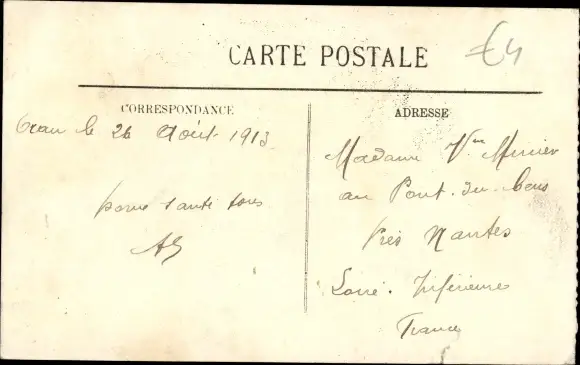 CARTE POSTALE
€4
CORRESPONDANCE
Oran le 26 Août 1913
bonne santé tous
AG
ADRESSE
Madame Vve
au Pont-du-Cens
Près Nantes
Loire-Inférieure
France